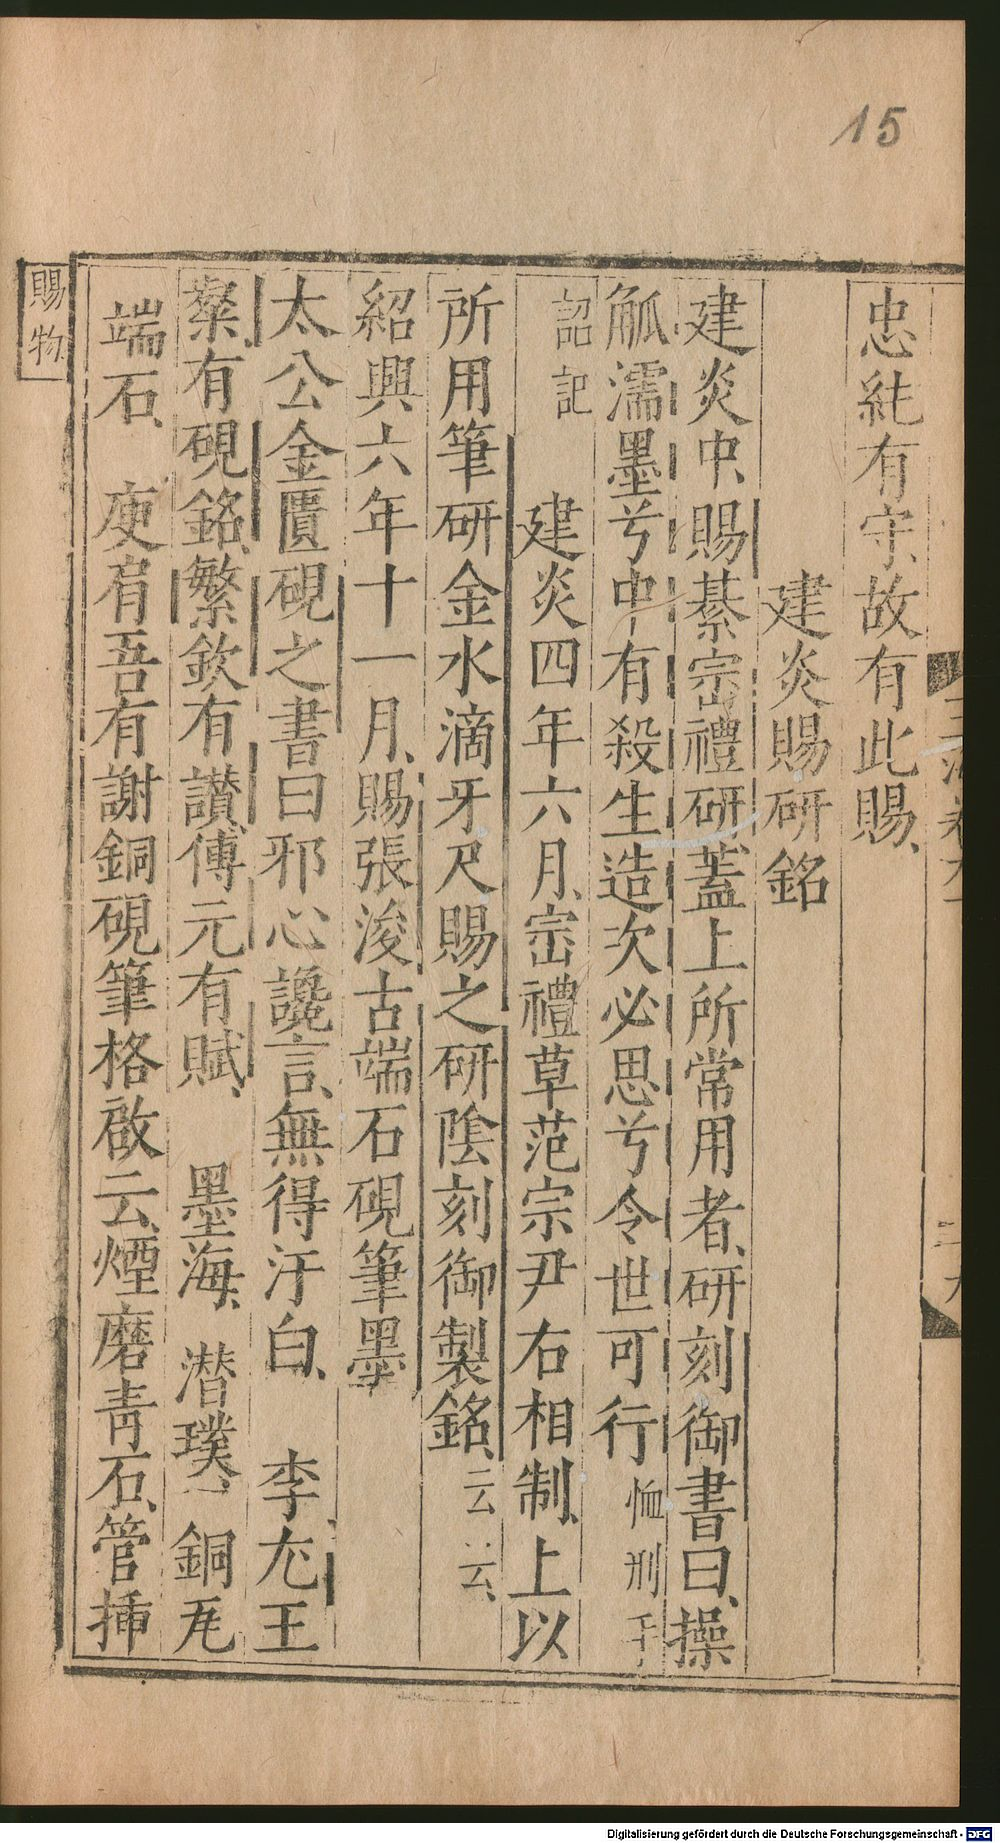 15
忠純有守、故有此賜、
建炎賜研銘
建炎中、賜綦崇禮研、蓋上所常用者、研刻御書曰、操
觚濡墨兮中有殺生造次必思兮令世可行恤刑手
詔記　建炎四年六月、崇禮草范宗尹右相制、上以
所用筆研金水滴牙尺賜之研陰刻御製銘、云云、
紹興六年十一月、賜張浚古端石硯筆墨
太公金匱硯之書曰邪心讒言、無得汙白、　李尤王
粲、有硯銘、繁欽有讃、傅元有賦、　墨海、　潜璞、　銅㡳
端石、　庾肩吾有謝銅硯筆格啟云、煙磨青石、管揷
賜物
Digitalisierung gefördert durch die Deutsche Forschungsgemeinschaft - DFG